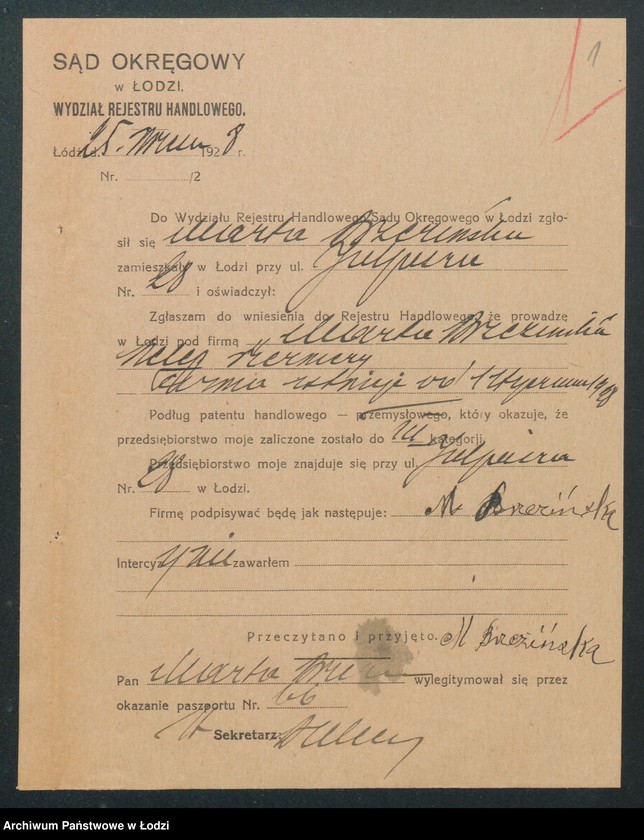 SĄD OKRĘGOWY
w ŁODZI.
WYDZIAŁ REJESTRU HANDLOWEGO.
1
Łódź d. 25. 1928 r.
Nr. /2
Do Wydziału Rejestru Handlowego Sądu Okręgowego w Łodzi zgło-
sił się Marta Brzezińska
zamieszkały w Łodzi przy ul.
Nr. 28 i oświadczył:
Zgłaszam do wniesienia do Rejestru Handlowego, że prowadzę
w Łodzi pod firmą Marta Brzezińska
sklep rzeźniczy
Firma istnieje od 1 stycznia 1928
Podług patentu handlowego — przemysłowego, który okazuje, że
przedsiębiorstwo moje zaliczone zostało do III kategorji.
Przedsiębiorstwo moje znajduje się przy ul.
Nr. 28 w Łodzi.
Firmę podpisywać będę jak następuje: M. Brzezińska
Intercyzy nie zawarłem
Przeczytano i przyjęto. M Brzezińska
Pan Marta wylegitymował się przez
okazanie paszportu Nr. 66
Sekretarz:
Archiwum Państwowe w Łodzi